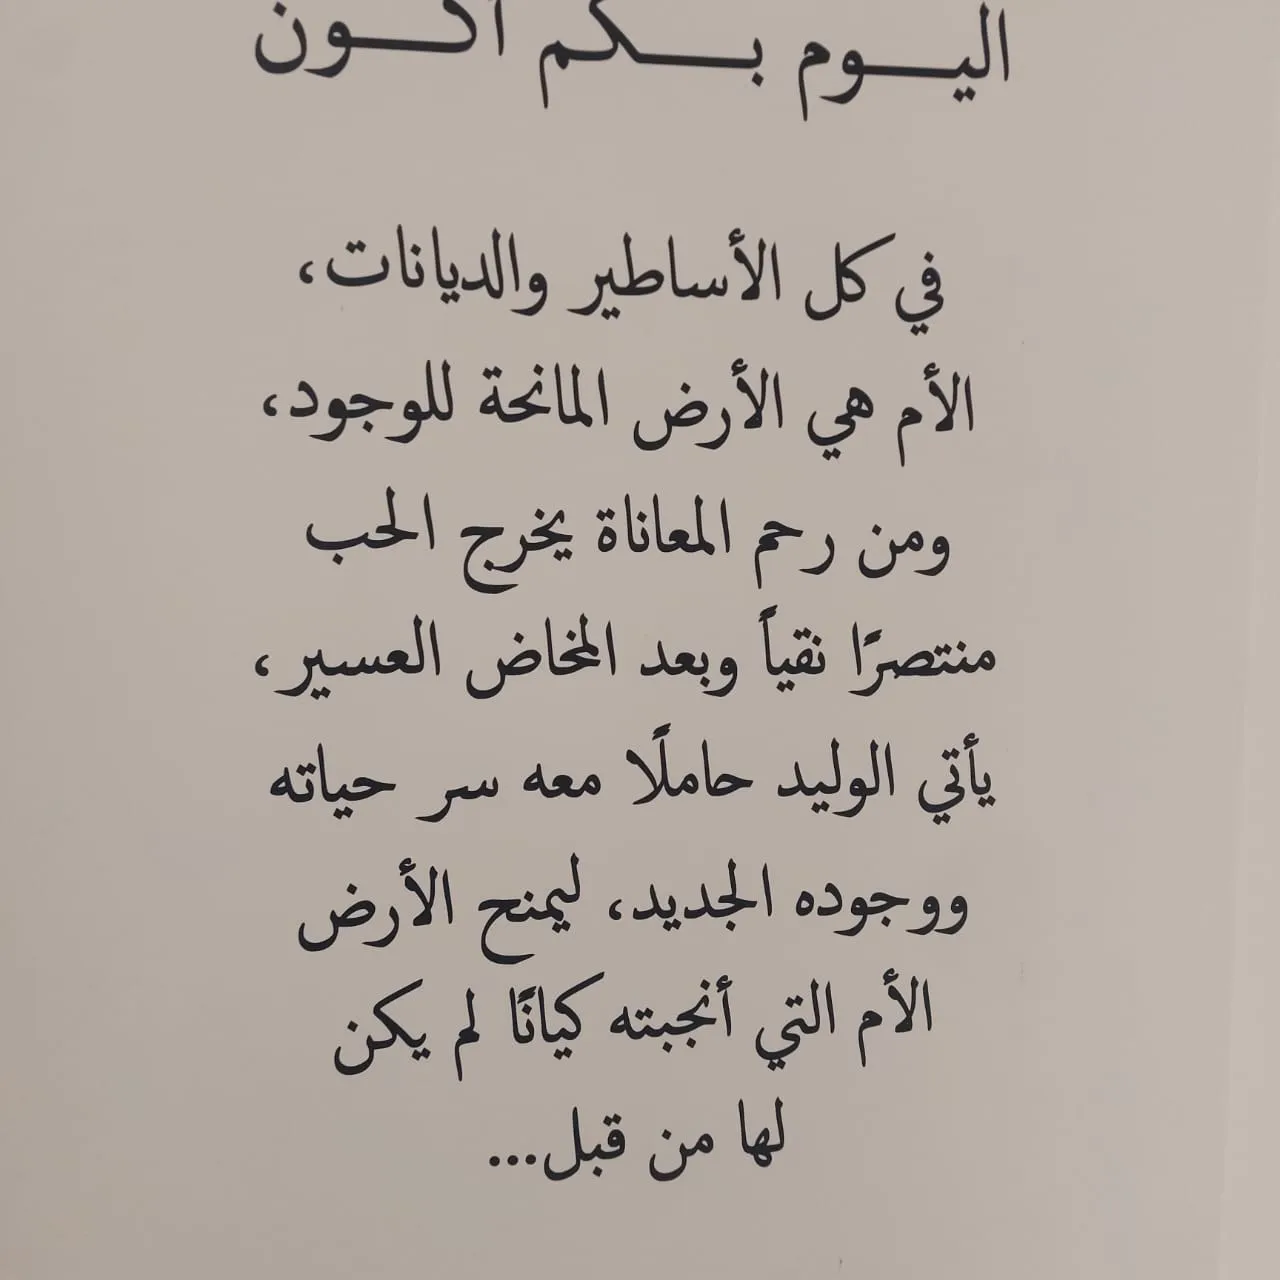 اليوم بكم أكون
في كل الأساطير والديانات،
الأم هي الأرض المانحة للوجود،
ومن رحم المعاناة يخرج الحب
منتصرًا نقياً وبعد المخاض العسير،
يأتي الوليد حاملًا معه سر حياته
ووجوده الجديد، ليمنح الأرض
الأم التي أنجبته كيانًا لم يكن
لها من قبل...